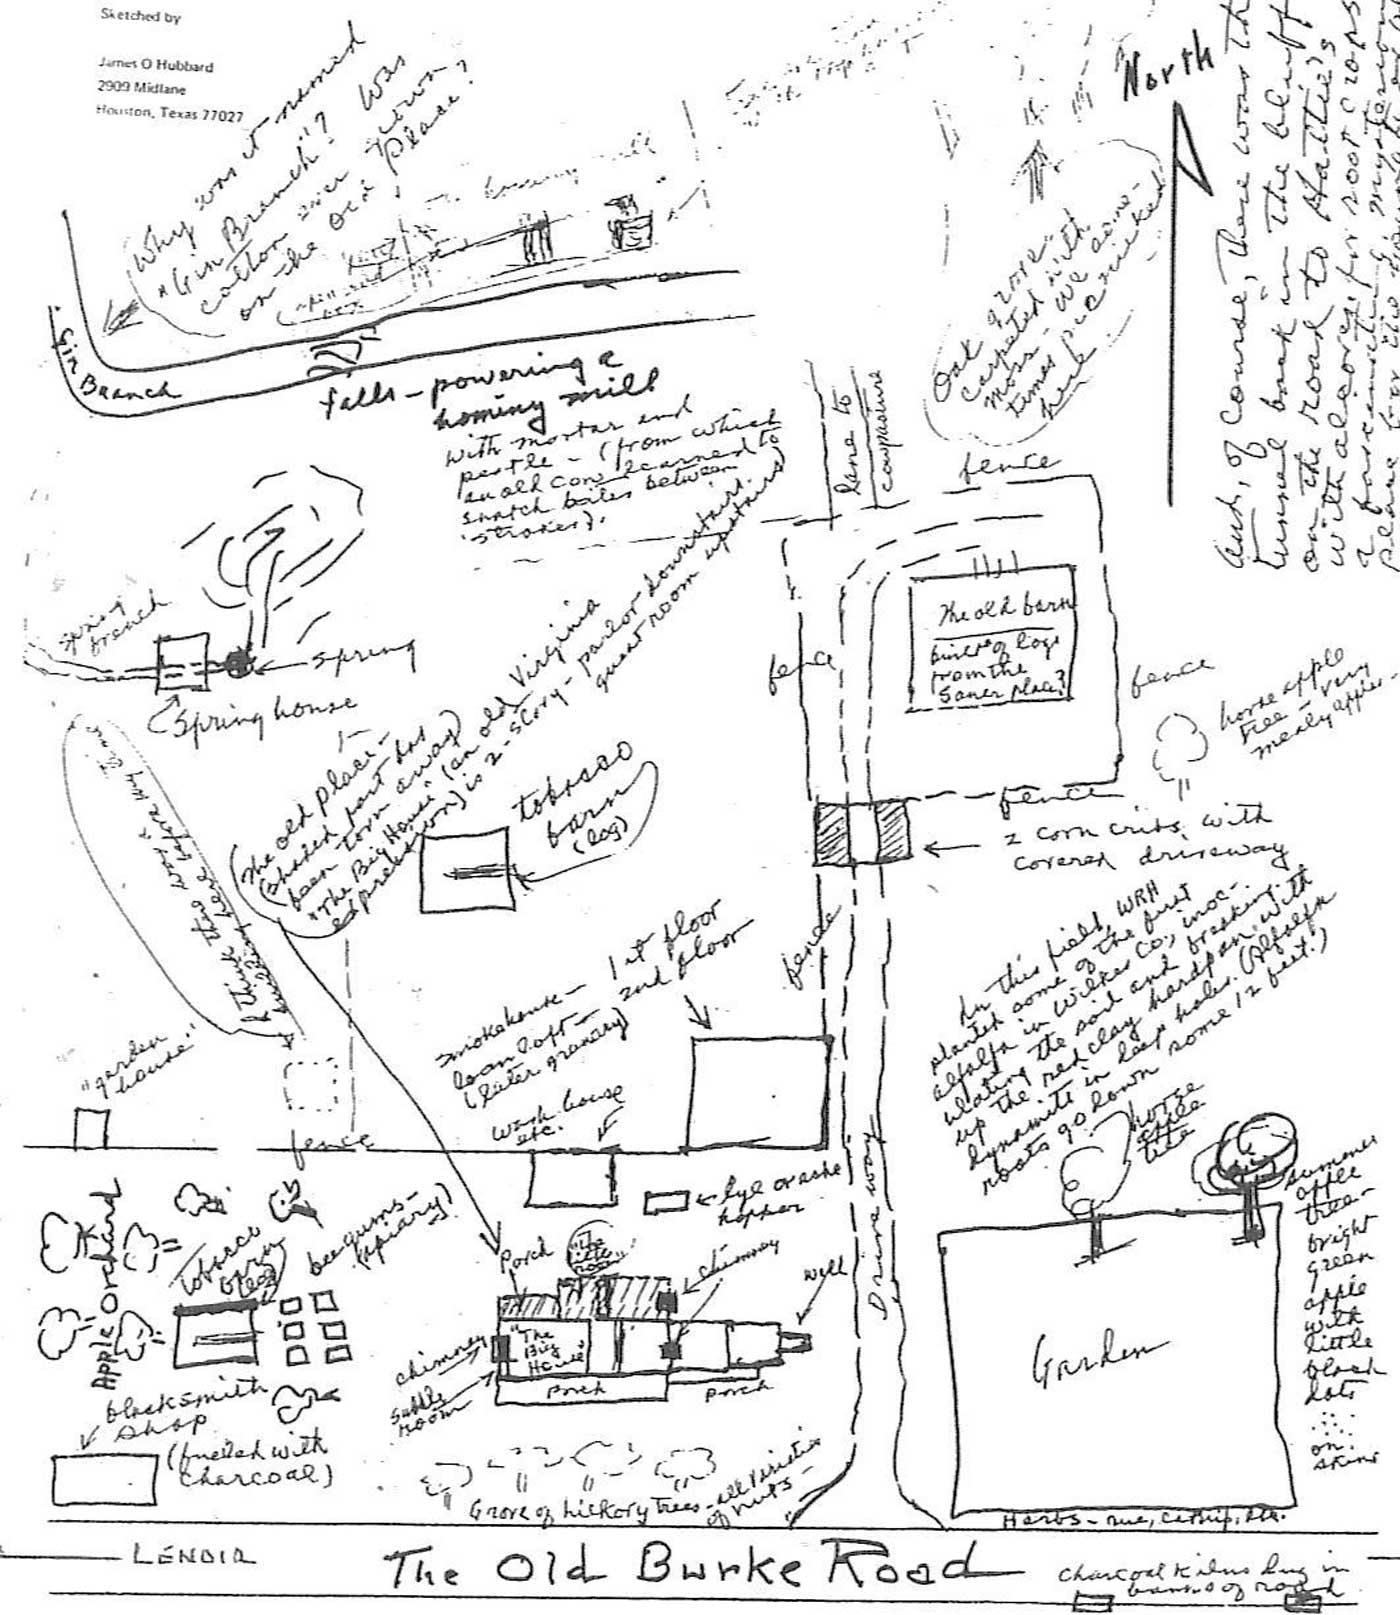 Sketched by
James O Hubbard
2909 Midlane
Houston, Texas 77027
Why was it named
"Gin Branch"? Was
cotton ever grown
on the old place?
North
And, of course, there was the
tunnel back in the bluff
on the road to Hattie's
with alcoves for root crops
Oak grove
carpeted with
moss - we some-
times picnicked
here.
Gin Branch
falls - powering a
hominy mill
with mortar and
pestle - (from which
an old cow learned to
snatch bites between
strokes).
lane to
cowpasture
fence
The old barn
built of logs
from the
Saner place?
fence
fence
fence
horse apple
tree - very
mealy apples -
Spring
branch
Spring
Spring house
(I think there was a
building here before my time
The old place -
(shaded part has
been torn away)
"The Big House" (an old Virginia
expression) is 2-story - parlor downstairs,
guest room upstairs)
tobacco
barn
(log)
2 corn cribs, with
covered driveway
fence
In this field, WRH
planted some of the first
alfalfa in Wilkes Co., inoc-
ulating the soil and breaking
up the red clay hardpan with
dynamite in deep holes. (Alfalfa
roots go down some 12 feet.)
smokehouse - 1st floor
loom loft - 2nd floor
(later granary)
wash house
etc.
"garden
house"
fence
lye or ashe
hopper
Driveway
horse
apple
tree
summer
apple
tree -
bright
green
apple
with
little
black
dots
on
skins
Apple Orchard
Tobacco
barn
(log)
bee gums -
(apiary)
Porch
"The
little
room"
chimney
well
chimney
"The
Big
House"
porch
porch
room
Garden
blacksmith
shop
(fueled with
charcoal)
Grove of hickory trees - all varieties
of nuts -
Herbs - rue, catnip, etc.
LENOIR
The Old Burke Road
Charcoal kilns dug in
banks of road